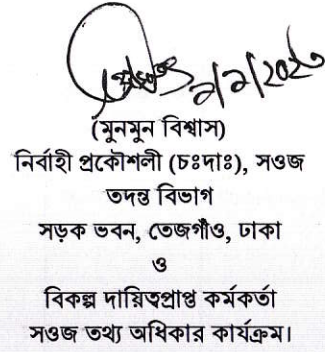 ২/২/২০২৩
(মুনমুন বিশ্বাস)
নির্বাহী প্রকৌশলী (চঃদাঃ), সওজ
তদন্ত বিভাগ
সড়ক ভবন, তেজগাঁও, ঢাকা
ও
বিকল্প দায়িত্বপ্রাপ্ত কর্মকর্তা
সওজ তথ্য অধিকার কার্যক্রম।